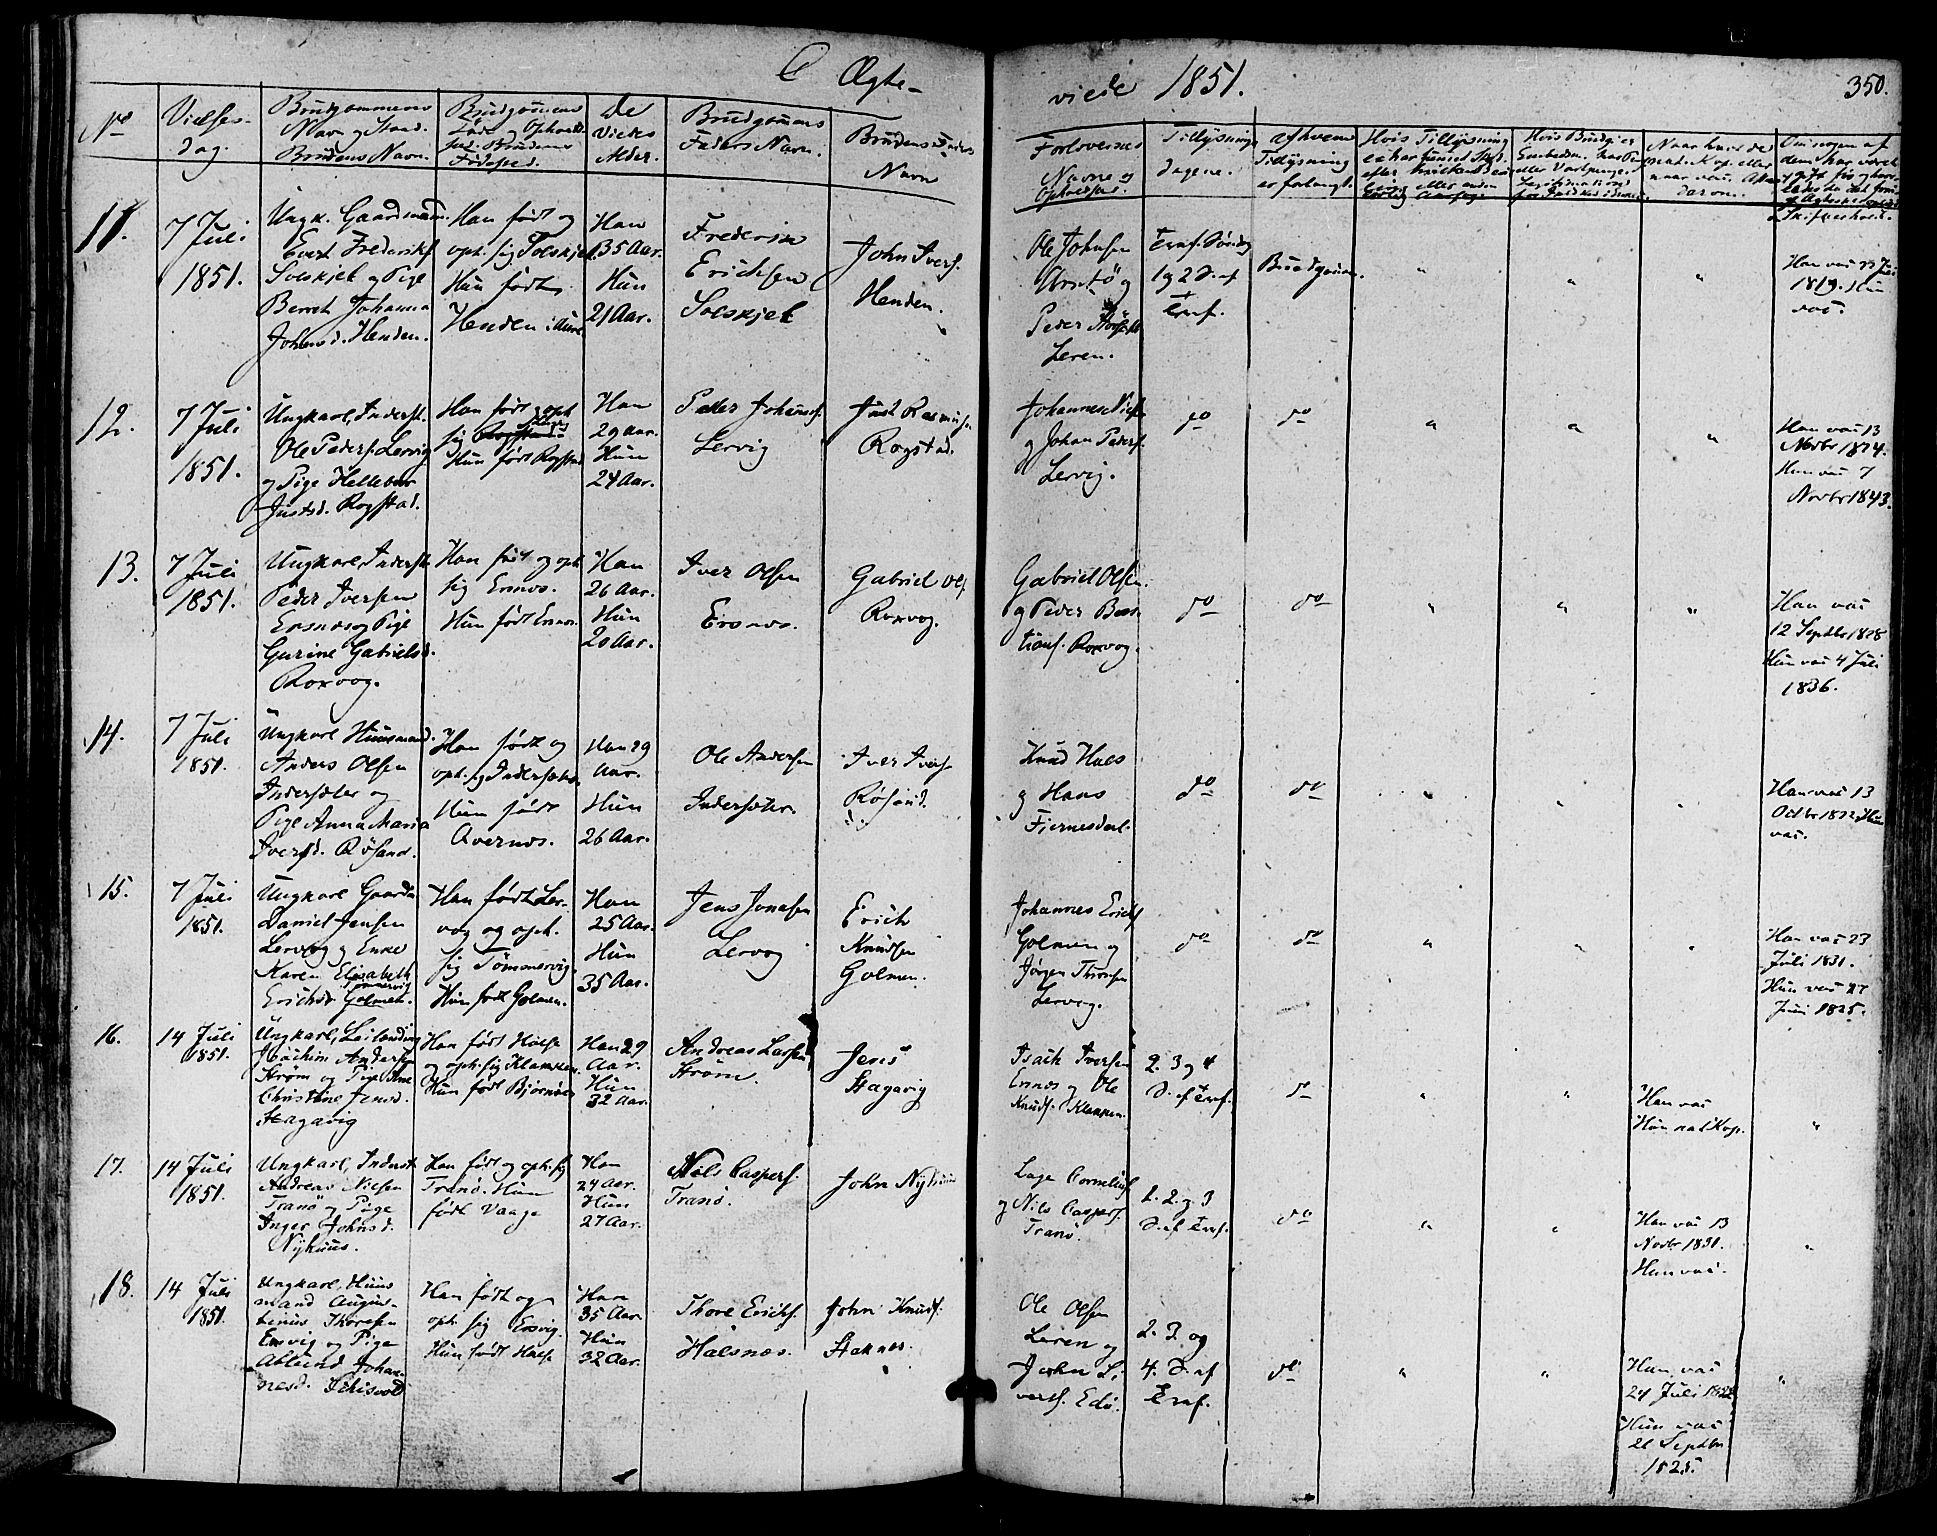 C Ægte-
viede 1851.
350.
No
Vielses-
dag.
Brudgommens
Navn og Stand.
Brudens Navn.
De
Viedes
Alder.
Brudgomens
Faders Navn.
Brudens Faders
Navn
Forlovernes
Navne og
Opholdssted.
Tillysnings
dagene.
af hvem
Tillysning
er forlangt.
11.
7 Juli
1851.
Ungk. Gaardmand
Evert Frederiksf
Solskjel og Pige
Beret Johanna
Johnsd. Henden.
Han født og
oph. sig Solskjel.
Hun født
Henden i Aure
Han
35 Aar.
Hun
21 Aar.
Frederik
Erichsen
Solskjel
John Iversf.
Henden.
Ole Johnsen
og
Peder
Leren.
Tref. Søndag
1 og 2 S. af
Tref.
Brudgom.
Han var
1819. Hun
var.
12.
7 Juli
1851.
Ungkarl, Inderst.
Ole Pedersf. Lervig
og Pige Hellebor
Justsd. Rogstad.
Han født og oph.
sig
Hun født Rogstad
Han
29 Aar.
Hun
24 Aar.
Peder Johansf.
Lervig
Just Rasmusf.
Rogstad.
Johannes Nielsen
og Johan Pedersf.
Lervig.
do
do
Han var 13
Novbr 1824.
Hun var 7
Novbr 1843.
13.
7 Juli
1851.
Ungkarl, Inderst.
Peder Iversen
Ersnes og Pige
Gurine Gabrielsd.
Roxvog.
Han født og oph.
sig Ersnes.
Hun født Ersnes.
Han
26 Aar.
Hun
20 Aar.
Iver Olsen
Ersnes.
Gabriel Ols.
Roxvog.
Gabriel Olsen
og Peder Bas-
tiansf. Roxvog.
do
do
Han var
12 Septbr 1828
Hun var 4 Juli
1836.
14.
7 Juli
1851.
Ungkarl Huusmand.
Anders Olsen
Indersæter og
Pige Anna Maria
Iversd. Røsand.
Han født og
oph. sig Indersæter.
Hun født
Qvernes.
Han 29
Aar.
Hun
26 Aar.
Ole Andersen
Indersæter.
Iver Iversf.
Røsand.
Knud Hals
og Hans
Fjernesdal.
do
do
Han var 13
Octbr 1822, Hun
var.
15.
7 Juli
1851.
Ungkarl Gaardm
Daniel Jensen
Lervog og Enke
Karen Elisabeth
Tømmervig
Erichsd. Golmen.
Han født Ler-
vog og oph.
sig Tømmervig.
Hun født Golmen.
Han
25 Aar.
Hun
35 Aar.
Jens Jonasen
Lervog
Erich
Knudsen
Golmen.
Johannes Erichsf
Golmen og
Jørgen Thoresen
Lervog.
do
do
Han var 23
Juli 1831.
Hun var 27
Juni 1825.
16.
14 Juli
1851.
Ungkarl, Leilænding
Joachim Andersen
Strøm og Pige Ane
Christine Jensd.
Stagavig
Han født Halse
og oph. sig Klempen.
Hun født Bjørnnes
Han 29
Aar.
Hun
32 Aar.
Andreas Larsen
Strøm.
Jens
Stagavig
Isach Iversen
Ersnes og Ole
Knudsf. Klempen.
2. 3 og 4
S. af Tref.
do
Han var
Hun nat. Kop.
17.
14 Juli
1851.
Ungkarl, Inderst
Andreas Nielsen
Tranø og Pige
Inger Johnsd.
Nyhuus.
Han født og oph. sig
Tranø. Hun
født Vaage
Han
24 Aar.
Hun
27 Aar.
Niels Caspersf.
Tranø.
John Nyhuus
Lage Corneliusf.
og Nils Caspersf.
Tranø.
1. 2. og 3
S. af Tref.
do
Han var 13
Novbr 1831.
Hun var.
18.
14 Juli
1851.
Ungkarl, Huus
mand Augus-
tinus Thoresen
Ersvig og Pige
Ablund Johan-
nesd.
Han født og
oph. sig Ersvig.
Hun født Halse
Han
35 Aar.
Hun
32 Aar.
Thore Erichsf.
Halsnes.
John Knudsf.
Staknes.
Ole Olsen
Leren og
John Si-
vertsf. Edø.
2. 3. og
4. S. af
Tref.
do
Han var
24 Juli 1822
Hun var
21 Septbr
1825.